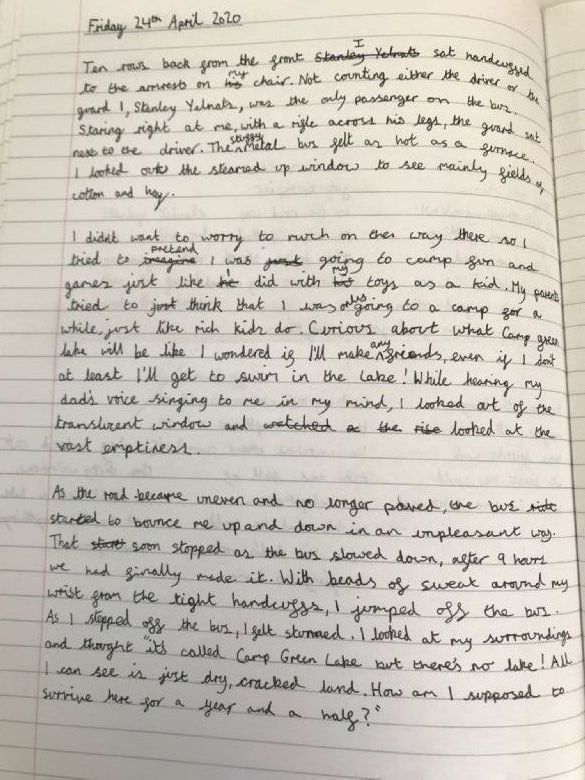 Friday 24th April 2020
I
Ten rows back from the front Stanley Yelnats sat handcuffed
my
to the armrests on his chair. Not counting either the driver or the
guard I, Stanley Yelnats, was the only passenger on the bus.
Staring right at me, with a rifle across his legs, the guard sat
stuffy
next to the driver. The metal bus felt as hot as a furnace.
I looked out the steamed up window to see mainly fields of
cotton and hay.
I didn't want to worry to much on ther way there so I
pretend
tried to imagine I was just going to camp fun and
my
games just like he did with his toys as a kid. My parents
only
tried to just think that I was going to a camp for a
while, just like rich kids do. Curious about what Camp green
any
lake will be like I wondered if I'll make friends, even if I dont
at least I'll get to swim in the lake! While hearing my
dad's voice singing to me in my mind, I looked out of the
translucent window and watched a the rise looked at the
vast emptiness.
As the road became uneven and no longer paved, the bus ride
started to bounce me up and down in an unpleasant way.
That start soon stopped as the bus slowed down, after 9 hours
we had finally made it. With beads of sweat around my
wrist from the tight handcuffs, I jumped off the bus.
As I stepped off the bus, I felt stunned. I looked at my surroundings
and thought "it's called Camp Green Lake but there's no lake! All
I can see is just dry, cracked land. How am I supposed to
survive here for a year and a half?"